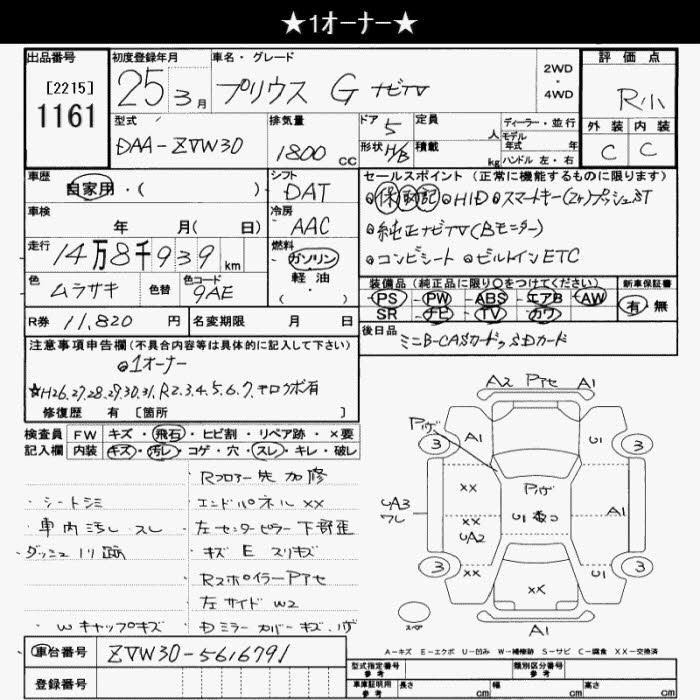 ★1オーナー★
出品番号
[2215]
1161
初度登録年月
25年 3月
車名・グレード
プリウス G ナビTV
2WD
・
4WD
評価点
R小
外装 内装
C C
型式
DAA-ZVW30
排気量
1800 CC
ドア 5
形状 H/B
定員 人
積載 kg
ディーラー・並行
モデル
年式 年
ハンドル 左・右
車歴
自家用・( )
シフト
DAT
車検
年 月( 日)
冷房
AAC
走行
14万8千939km
燃料
ガソリン
軽油
( )
色
ムラサキ
色替
色コード
9AE
R券 11,820 円
名変期限 月 日
セールスポイント (正常に機能するものに限ります)
◎保取記◎HID◎スマートキー(2ケ)プッシュST
◎純正ナビTV(Bモニター)
◎コンビシート◎ビルトインETC
装備品 (純正品に限り○をつけてください)
PS・PW・ABS・エアB・AW
SR ナビ・TV・カワ
新車保証書
有・無
後日品
ミニB-CASカード、SDカード
注意事項申告欄(不具合内容等は具体的に記入して下さい)
◎1オーナー
★H26.27.28.29.30.31.R2.3.4.5.6.7.キロクボ有
修復歴 有 [箇所 ]
検査員 FW キズ・飛石・ヒビ割・リペア跡・×要
記入欄 内装 キズ・汚レ・コゲ・穴・スレ・キレ・破レ
Rフロアー先加修
・シートシミ
エンドパネルXX
・車内汚レ スレ
左センターピラー下部歪
・ダッシュ
キズ E スリキズ
RスポイラーPアセ
左サイドW2
Wキャップキズ
Dミラーカバーキズ・ハゲ
A2 Pアセ A1
Pハゲ
3 A1 U1 3
XX
Pハゲ
UA3
ワレ
XX
UA2
U1 数コ
A1
3 XX XX U1 3
スペア
A1
A-キズ E-エクボ U-凹み W-補修跡 S-サビ C-腐食 XX-交換済
車台番号 ZVW30-5616791
登録番号
型式指定番号
参考
類別区分番号
参考
車庫証明用
参考
長さ cm 幅 cm 高さ cm